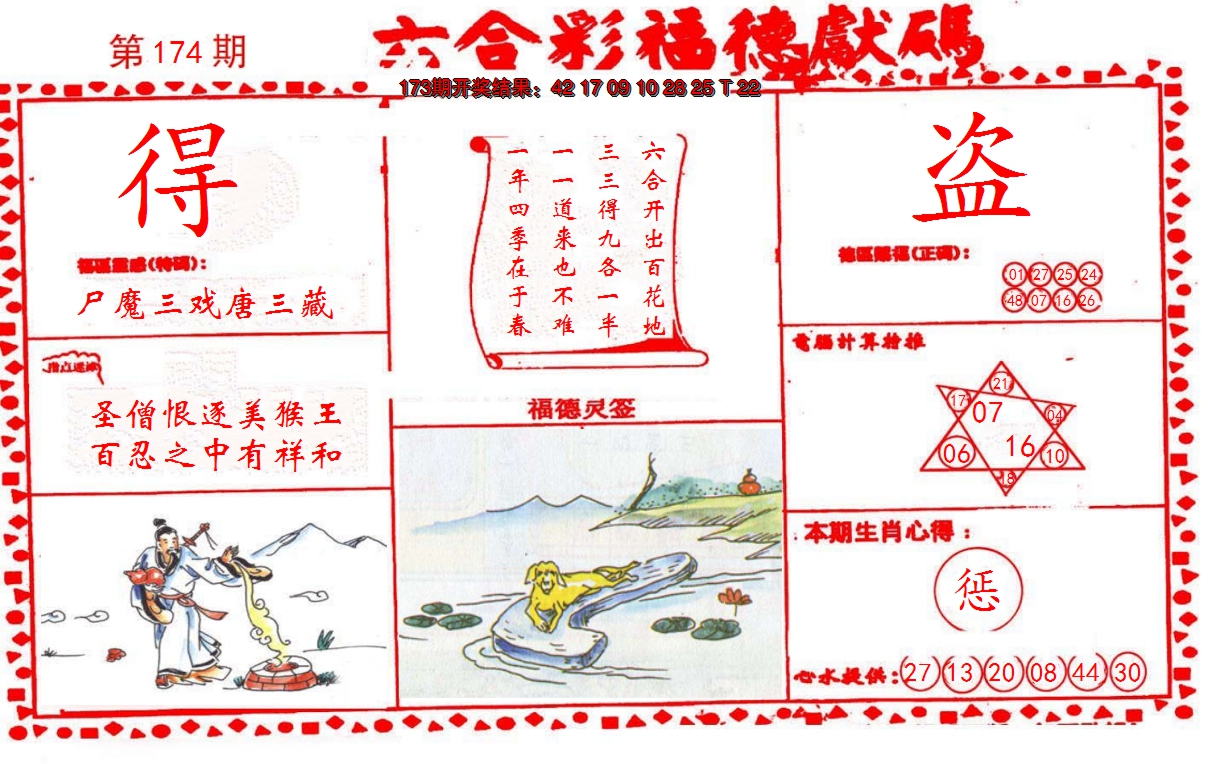 第174期
六合彩福德獻碼
173期开奖结果：42 17 09 10 28 25 T 22
得
福區靈感(特碼)：
尸魔三戏唐三藏
指点迷津
圣僧恨逐美猴王
百忍之中有祥和
六合开出百花地
三三得九各一半
一一道来也不难
一年四季在于春
福德灵签
盗
德區賜福(正碼)：
01 27 25 24
48 07 16 26
電腦計算檢推
21
17 07 04
06 16 10
18
本期生肖心得：
惩
心水提供：27 13 20 08 44 30